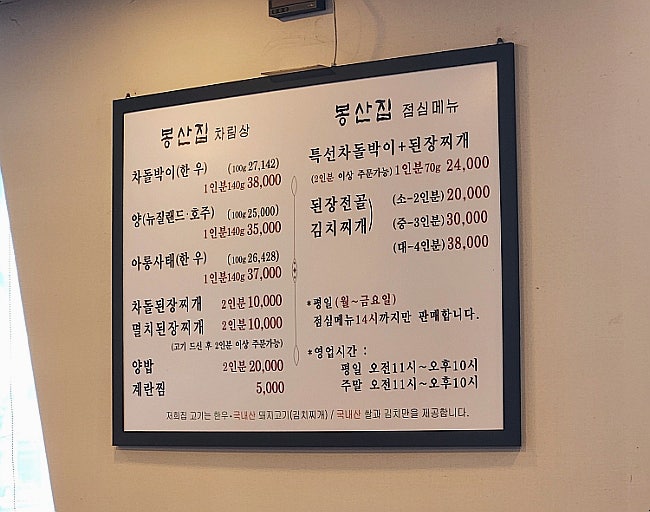 봉산집 차림상
차돌박이(한 우) (100g 27,142)
1인분140g 38,000
양(뉴질랜드·호주) (100g 25,000)
1인분140g 35,000
아롱사태(한 우) (100g 26,428)
1인분140g 37,000
차돌된장찌개 2인분 10,000
멸치된장찌개 2인분 10,000
(고기 드신 후 2인분 이상 주문가능)
양밥 2인분 20,000
계란찜 5,000
봉산집 점심메뉴
특선차돌박이+된장찌개
(2인분 이상 주문가능) 1인분 70g 24,000
된장전골 (소-2인분) 20,000
김치찌개 (중-3인분) 30,000
(대-4인분) 38,000
*평일 (월~금요일)
점심메뉴14시까지만 판매합니다.
*영업시간 :
평일 오전11시~오후10시
주말 오전11시~오후10시
저희집 고기는 한우·국내산 돼지고기(김치찌개) / 국내산 쌀과 김치만을 제공합니다.